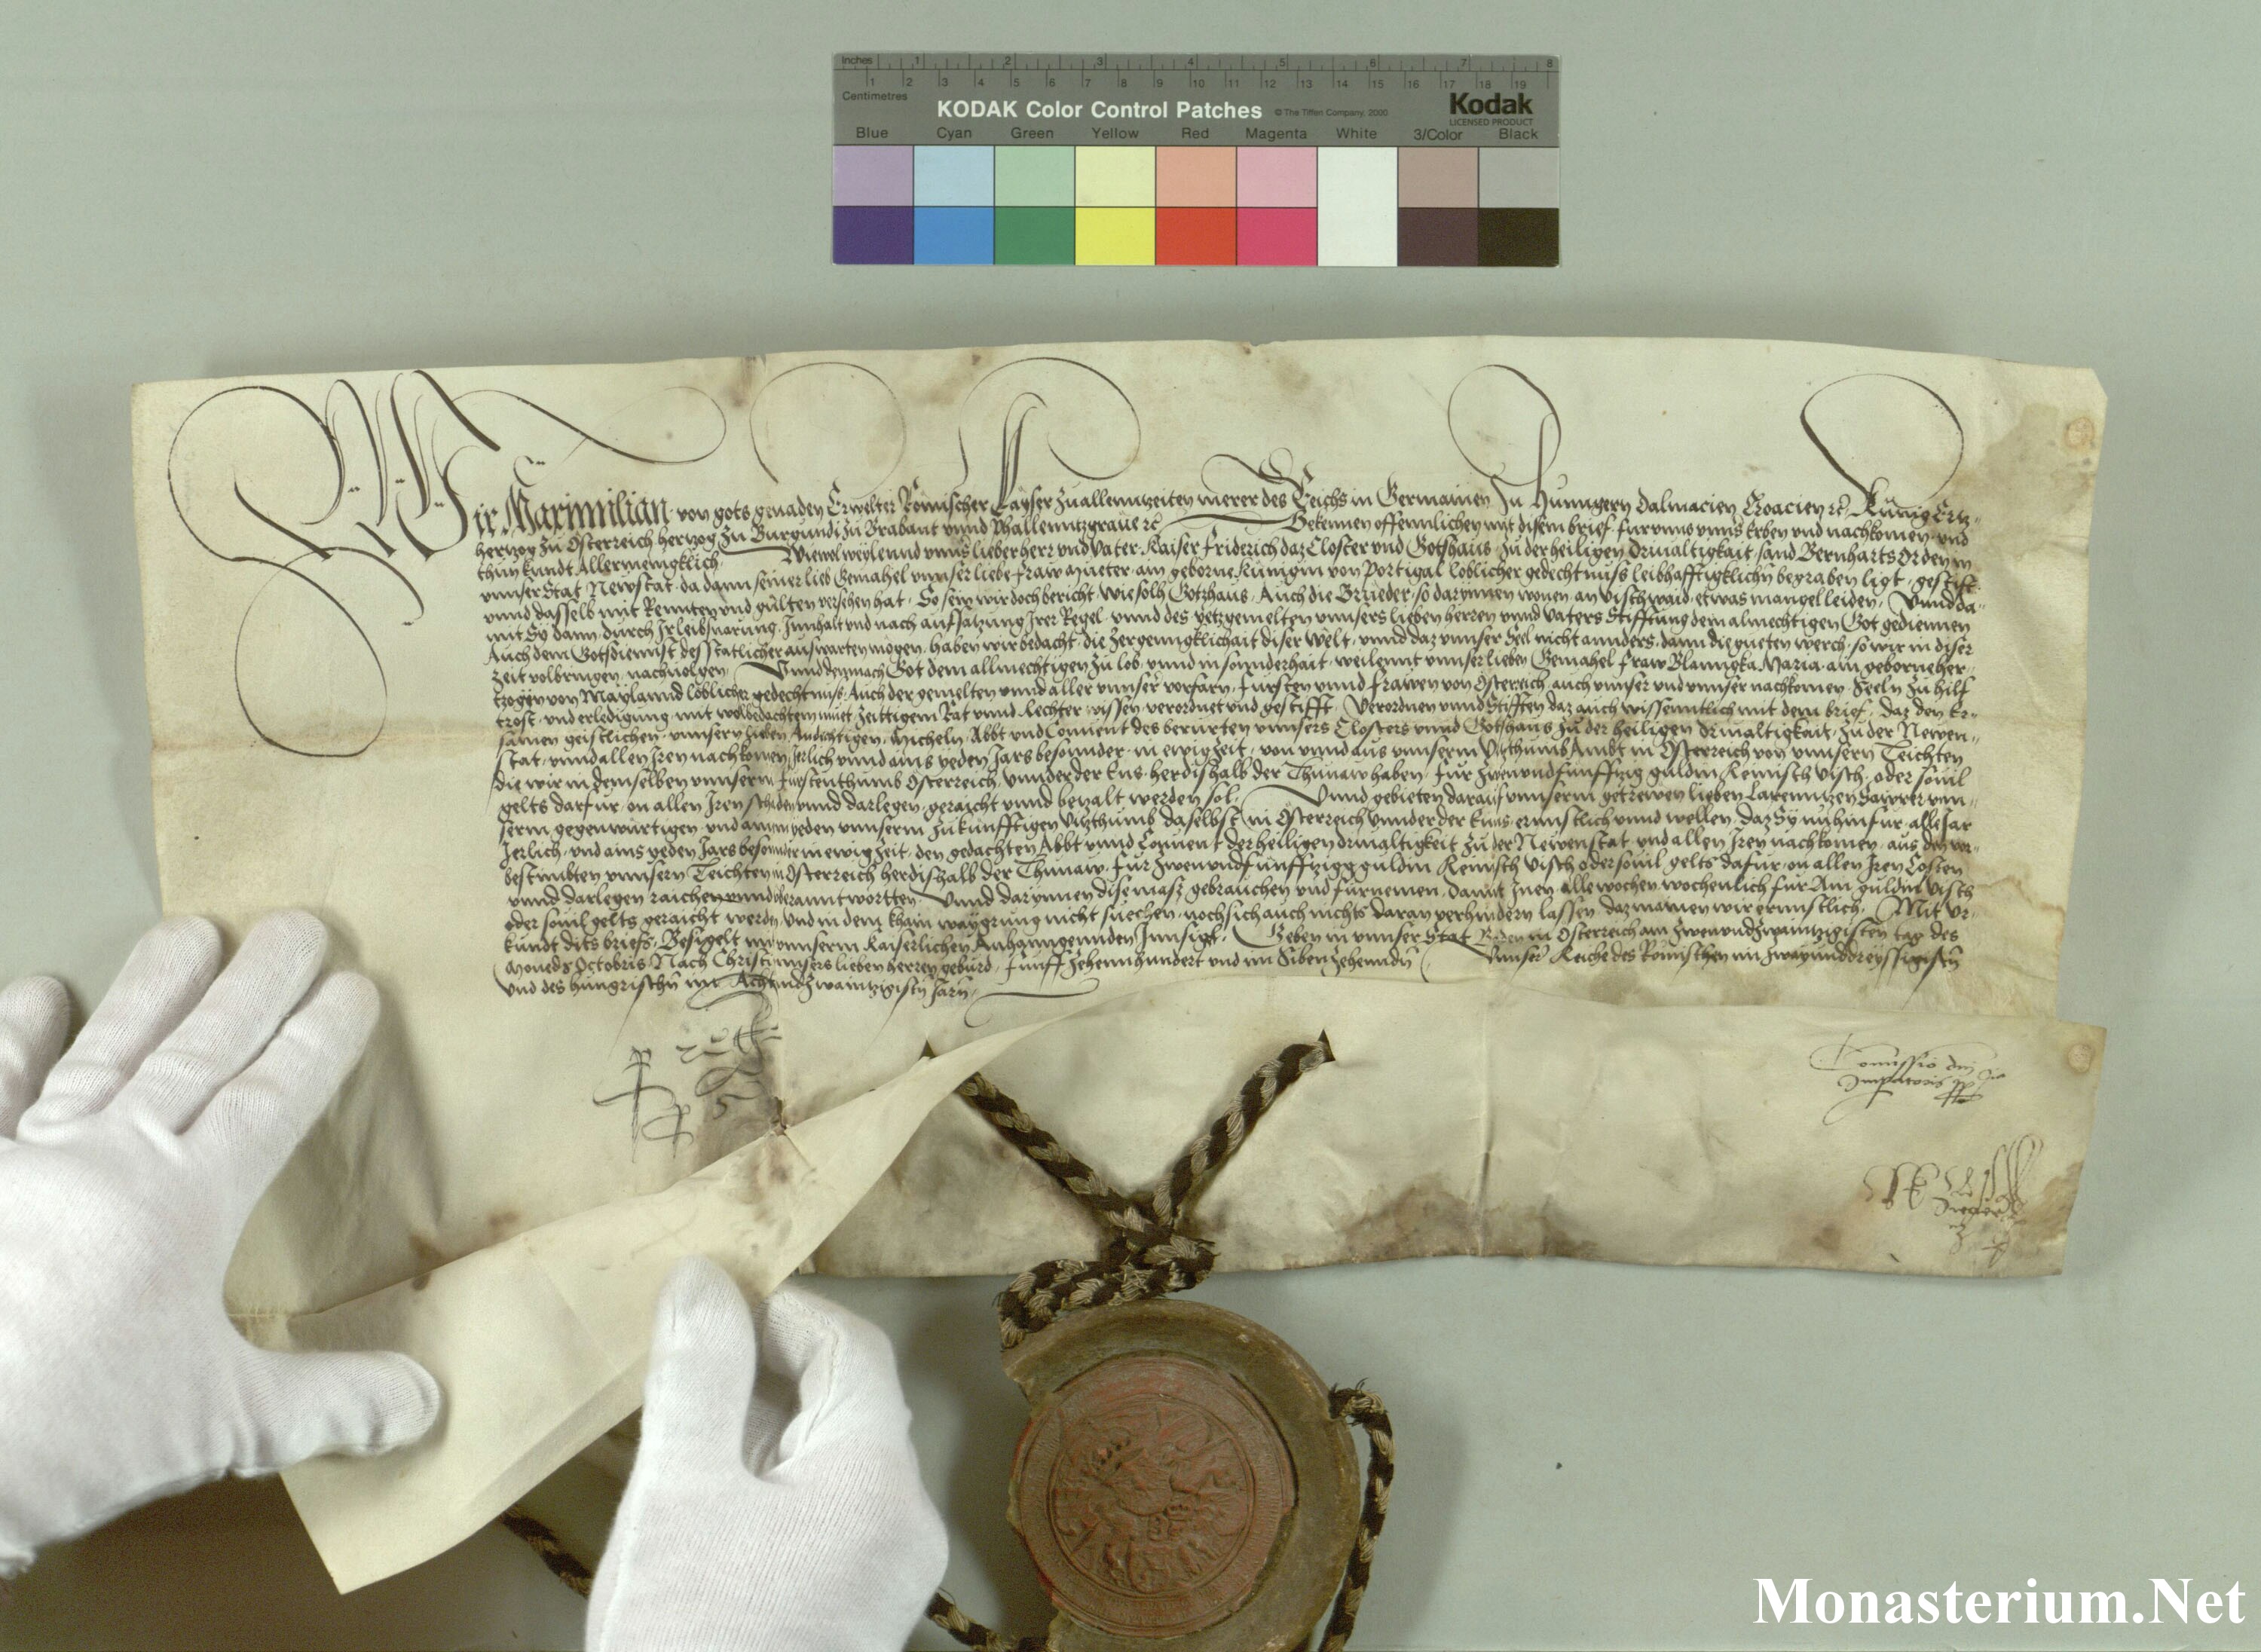 Inches 1 2 3 4 5 6 7 8
1 2 3 4 5 6 7 8 9 10 11 12 13 14 15 16 17 18 19
Centimetres
KODAK Color Control Patches © The Tiffen Company, 2000 Kodak
LICENSED PRODUCT
Blue Cyan Green Yellow Red Magenta White 3/Color Black
Wir Maximilian von gots genaden Erwelter Römischer Kayser zuallenntzeiten merer des Reichs in Germanien Zu Hunngern Dalmacien Croacien rc Kunig Ertz-
hertzog zu Osterreich hertzog zu Burgundi zu Brabant vnnd Phallenntzgraue rc Bekennen offennlichen mit disem brief fur vnns vnns Erben vnd nachkomen vnd
thun kundt Allermenigklich Wiewol weylennd vnns lieber herr vnd vater Kaiser Friderich daz Closter vnd Gotshaus zu der heiligen Driualtigkait sand Bernharts Orden in
vnnser Stat Newstat da dann seiner lieb Gemahel vnnser liebe fraw mueter ain geborne Kunigin von Portigal loblicher gedechtnuss leibhafftigklichn begraben ligt gestifft
vnnd dasselb mit Rennten vnd gulten versehen hat So sein wir doch bericht wie solh Gotzhaus Auch die Brueder so darynnen wonen an vischwaid etwas mangel leiden Vnnd da-
mit Sy dann durch Ir leibsnarung Innhalt vnd nach aufsatzung Irer Regel vnnd des yetzgemelten vnnsers lieben herren vnnd vaters Stifftung dem almechtigen Got gediennen
Auch dem Gotsdiennst des statlicher auswarten mogen haben wir bedacht die zergenngklichait diser welt vnnd daz vnnser Seel nicht annders dann die gueten werch so wir in diser
zeit volbringen nachuolgen Vnnd demnach Got dem allmechtigen zu lob vnnd in sonnderhait weilennt vnnser lieben Gemahel fraw Blanngka Maria ain geborne her-
tzogin von Maylannd loblicher gedechtnus Auch der gemelten vnnd aller vnnser vorfarn Fursten vnnd frawen von Osterreich auch vnnser vnd vnnser nachkomen Seeln zu hilf
trost vnd erledigung mit wolbedachtem muet zeittigem Rat vnnd Rechter wissen verordnet vnd gestifft Verordnen vnnd Stifften daz auch wissenntlich mit dem brief daz den Er-
samen geistlichen vnnsern lieben Andechtigen Micheln Abbt vnd Conuent des berurten vnnsers Closters vnnd Gotshaus zu der heiligen Driualtigkait zu der Newen-
stat vnnd allen Iren nachkomen Jerlich vnnd ains yeden Jars besonnder in ewig zeit von vnnd aus vnnserm Vitzthumb Ambt in Osterreich von vnnsern Teichten
die wir in demselben vnnserm furstenthumb Osterreich vnnder der Enns herdishalb der Thunaw haben fur zwenvndfunffzig guldin Reinisch visch oder souil
gelts darfur on allen Iren schaden vnnd darlegen geraicht vnnd betzalt werden sol Vnnd gebieten darauf vnnserm getrewen lieben Larenntzen Sawrer vnn-
serm gegenwurtigen vnd ainem yeden vnnserm zukunfftigen Vitzthumb daselbst in Osterreich vnnder der Enns ernnstlich vnnd wellen daz Sy nu hinfur alle Jar
Jerlich vnd ains yeden Jars besonnder in ewig zeit den gedachten Abbt vnnd Conuent der heiligen driualtigkeit zu der Newenstat vnd allen Iren nachkomen aus den vor-
bestimbten vnnsern Teichten in Osterreich herdishalb der Thunaw fur zwenvndfunffzigg guldin Reinisch visch oder souil gelts dafur on allen Iren Costen
vnnd darlegen raichen vnnd veranntwortten Vnnd darynnen dise masz gebrauchen vnd furnemen damit Inen alle wochen wochenlich fur Ain guldin visch
oder souil gelts geraicht werdn vnd in dem khain waygrung nicht suechen noch sich auch nichts daran verhindern lassen daz mainen wir ernnstlich Mit vr-
kundt dits briefs Besigelt mit vnnserm Kaiserlichen Anhanngennden Innsigl Geben in vnnser Stat Baden in Osterreich am zwenvndzwaintzigisten tag des
Moneds Octobris Nach Christi vnnsers lieben herren geburd Funfftzehennhundert vnd im Sibenzehenndn Vnnser Reiche des Romischen im zwayunddreyssigistn
vnd des hungrischn im Achtundzwaintzigistn Jarn
Comissio dni
Imperatoris ppa
Monasterium.Net